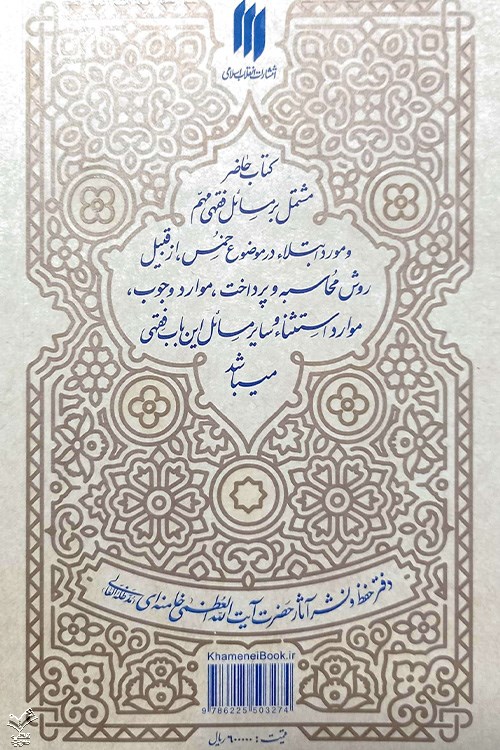 انتشارات انقلاب اسلامی
کتاب حاضر
مشتمل بر مسائل فقهی مهم
و مورد ابتلاء در موضوع خمس، از قبیل
روش محاسبه و پرداخت، موارد وجوب،
موارد استثناء و سایر مسائل این باب فقهی
میباشد
دفتر حفظ و نشر آثار حضرت آیت الله العظمی خامنه‌ای
KhameneiBook.ir
9 786225 503274
قیمت: ۶۰۰۰۰۰ ریال